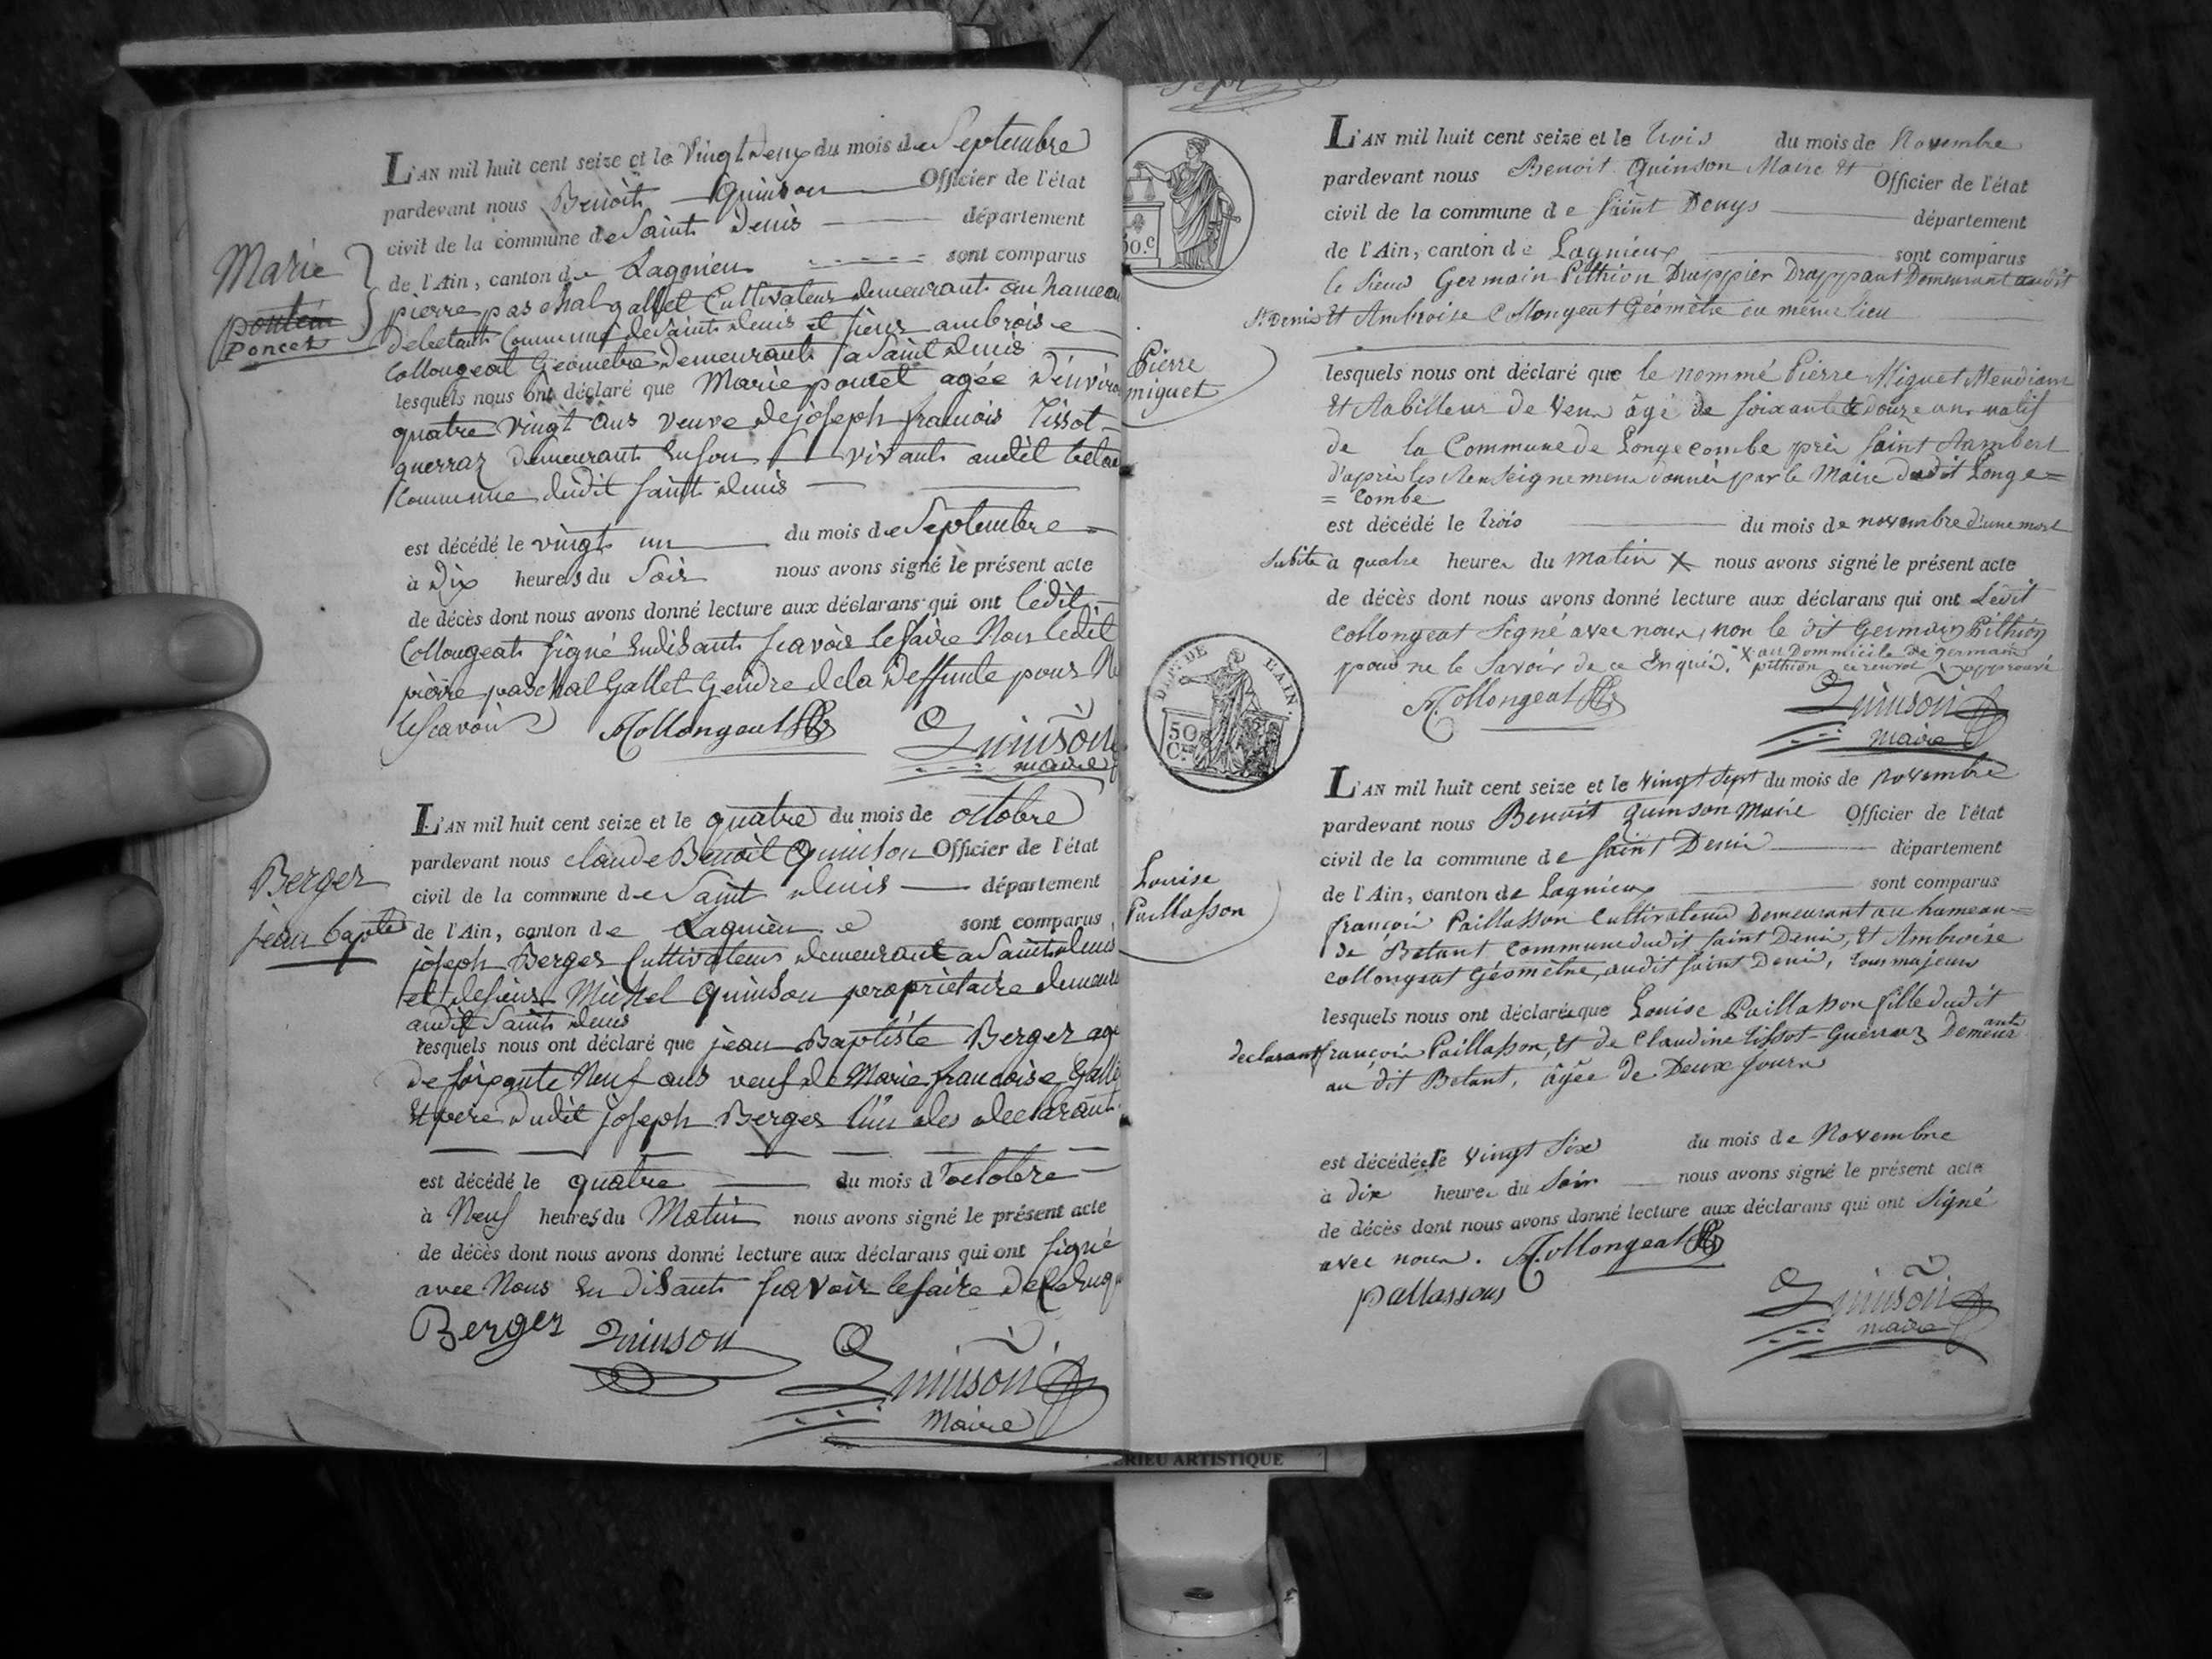 L'AN mil huit cent seize et le Vingt deux du mois de Septembre
pardevant nous Benoit Quinson Officier de l'état
civil de la commune de Saint Denis département
de l'Ain, canton de Lagnieu sont comparus
pierre paschal gallet Cultivateur demeurant au hameau
de betant Commune de Saint denis et sieur ambroise
Collongeat Géometre demeurant a Saint denis
lesquels nous ont déclaré que Marie poncet agée d'environ
quatre vingt ans veuve de joseph francois Tissot
guerraz demeurant en son vivant audit betan
Commune dudit saint denis
est décédé le vingt un du mois de Septembre
à Dix heures du Soir nous avons signé le présent acte
de décès dont nous avons donné lecture aux déclarans qui ont ledit
Collongeat signé en disant scavoir le faire Non ledit
pierre paschal Gallet Gendre de la deffunte pour Ne
le scavoir Acollongeat Quinson
maire
Marie
pontem
Poncet
L'AN mil huit cent seize et le quatre du mois de octobre
pardevant nous claude Benoit Quinson Officier de l'état
civil de la commune de Saint denis département
de l'Ain, canton de Lagnieu sont comparus
joseph Berger Cultivateur demeurant a Saint denis
et de sieur Michel Quinson propriétaire demeura
audit Saint denis
lesquels nous ont déclaré que jean Baptiste Berger age
de soixante Neuf ans veuf de Marie francoise Galle
Et pere dudit joseph Berger l'un des declarant
est décédé le quatre du mois d'octobre
à Neuf heures du Matin nous avons signé le présent acte
de décès dont nous avons donné lecture aux déclarans qui ont signé
avec Nous En disant scavoir le faire de ce enqu
Berger Quinson Quinson
Maire
Berger
jean bapte
Sept
50.c
L'AN mil huit cent seize et le trois du mois de Novembre
pardevant nous Benoit Quinson Maire et Officier de l'état
civil de la commune de Saint Denys département
de l'Ain, canton de Lagnieux sont comparus
le Sieur Germain Pithion Drappier Drappant Demeurant audit
St. Denis et Ambroise Collongeat Géomètre en même lieu
lesquels nous ont déclaré que le nommé Pierre Miguet Mendiant
et de âgé de soixante et douze ans natif
de la Commune de Longecombe près Saint Rambert
d'après les Renseignemens donnés par le Maire dudit Longe=
= Combe
est décédé le trois du mois de novembre d'une mort
subite à quatre heures du matin X nous avons signé le présent acte
de décès dont nous avons donné lecture aux déclarans qui ont Ledit
Collongeat Signé avec nous, non le dit Germain Pithion
pour ne le Savoir de ce Enquis. X au Dommicile de germain
pithion ce renvoi approuvé
A.Collongeat Quinson
maire
Pierre
miguet
DEPT. DE L'AIN.
50
C.
L'AN mil huit cent seize et le Vingt Sept du mois de Novembre
pardevant nous Benoit Quinson Maire Officier de l'état
civil de la commune de Saint Denis département
de l'Ain, canton de Lagnieux sont comparus
françois Paillasson Cultivateur Demeurant au hameau=
de Betant Commune dudit Saint Denis, et Ambroise
Collongeat Géomètre, audit Saint Denis, tous majeurs
lesquels nous ont déclaré que Louise Paillasson fille dudit
déclarant françois Paillasson, et de Claudine Tissot-Guerraz Demeurant
au dit Betant, âgée de Deux jours
est décédée le Vingt Six du mois de Novembre
à Dix heures du Soir nous avons signé le présent acte
de décès dont nous avons donné lecture aux déclarans qui ont Signé
avec nous. A.Collongeat
pallassons Quinson
maire
Louise
Paillasson
RIEU ARTISTIQUE